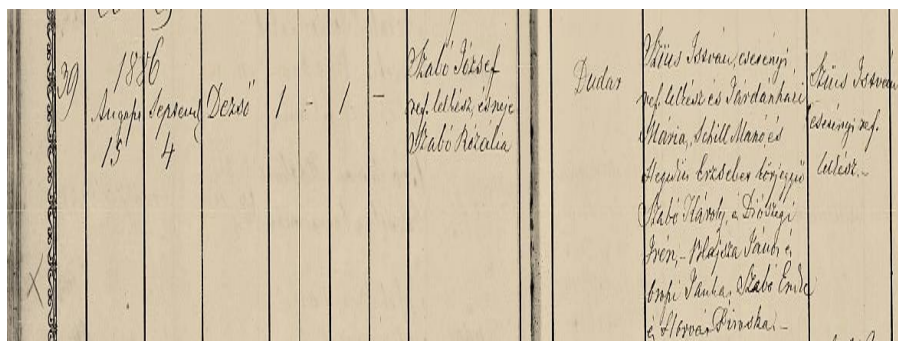 39
1886
Augusz
15
Septemb
4
Dezső
1 - 1 -
Szabó József
ref. lelkész, és neje
Szabó Rozália
Dudar
Szűcs István, csesényi
ref. lelkész és Tardánházi
Mária, Schill Manó, és
Hegedüs Erzsébet körjegyző
Szabó Károly, és Diószegi
Irén, - János és
Szabó Endre
és Piroska, -
Szűcs István
csesényi ref.
lelkész. -